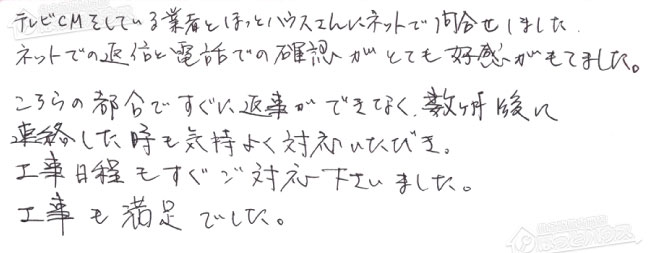 テレビCMをしている業者とほっとハウスさんにネットで問合せしました.
ネットでの返信と電話での確認がとても好感がもてました。
こちらの都合ですぐに返事ができなく、数ヶ月後に
連絡した時も気持よく対応いただき。
工事日程もすぐご対応下さいました。
工事も満足でした。